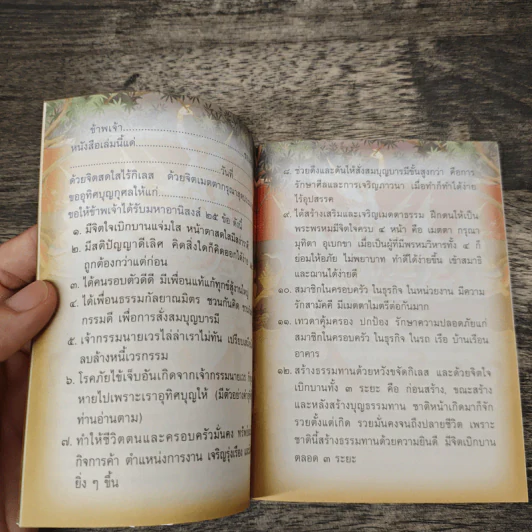 ข้าพเจ้า
หนังสือเล่มนี้แด่
วันที่
ด้วยจิตสดใสไร้กิเลส ด้วยจิตเมตตากรุณา
ขออุทิศบุญกุศลให้แก่
ขอให้ข้าพเจ้าได้รับมหาอานิสงส์ ๒๕ ข้อ ดังนี้
๑. มีจิตใจเบิกบานแจ่มใส หน้าตาสดใส
๒. มีสติปัญญาดีเลิศ คิดสิ่งใดก็คิดออกได้ง่าย
ถูกต้องกว่าแต่ก่อน
๓. ได้คนรอบตัวดีดี มีเพื่อนแท้แก้ทุกข์สู้งานใหญ่
๔. ได้เพื่อนธรรมกัลยาณมิตร ชวนกันคิด
กรรมดี เพื่อการสั่งสมบุญบารมี
๕. เจ้ากรรมนายเวรไล่ล่าเราไม่ทัน เปรียบเสมือน
ลบล้างหนี้เวรกรรม
๖. โรคภัยไข้เจ็บอันเกิดจากเจ้ากรรมนายเวร
หายไปเพราะเราอุทิศบุญให้ (มีตัวอย่าง
ท่านอ่านตาม)
๗. ทำให้ชีวิตตนและครอบครัวมั่นคง
กิจการค้า ตำแหน่งการงาน เจริญรุ่งเรือง
ยิ่ง ๆ ขึ้น
๘. ช่วยดึงและดันให้สั่งสมบุญบารมีขั้นสูงกว่า คือการ
รักษาศีลและการเจริญภาวนา เมื่อทำก็ทำได้ง่าย
ไร้อุปสรรค
๙. ได้สร้างเสริมและเจริญเมตตาธรรม ฝึกตนให้เป็น
พระพรหมมีจิตใจครบ ๔ หน้า คือ เมตตา กรุณา
มุทิตา อุเบกขา เมื่อเป็นผู้ที่มีพรหมวิหารทั้ง ๔ ก็
ย่อมให้อภัย ไม่พยาบาท ทำดีได้ง่ายขึ้น เข้าสมาธิ
และฌานได้ง่ายดี
๑๐. สมาชิกในครอบครัว ในธุรกิจ ในหน่วยงาน มีความ
รักสามัคคี มีเมตตาไมตรีต่อกันมาก
๑๑. เทวดาคุ้มครอง ปกป้อง รักษาความปลอดภัยแก่
สมาชิกในครอบครัว ในธุรกิจ ในรถ เรือ บ้านเรือน
อาคาร
๑๒. สร้างธรรมทานด้วยหวังขจัดกิเลส และด้วยจิตใจ
เบิกบานทั้ง ๓ ระยะ คือ ก่อนสร้าง, ขณะสร้าง
และหลังสร้างบุญธรรมทาน ชาติหน้าเกิดมาก็จัก
รวยตั้งแต่เกิด รวยมั่นคงจนถึงปลายชีวิต เพราะ
ชาตินี้สร้างธรรมทานด้วยความยินดี มีจิตเบิกบาน
ตลอด ๓ ระยะ